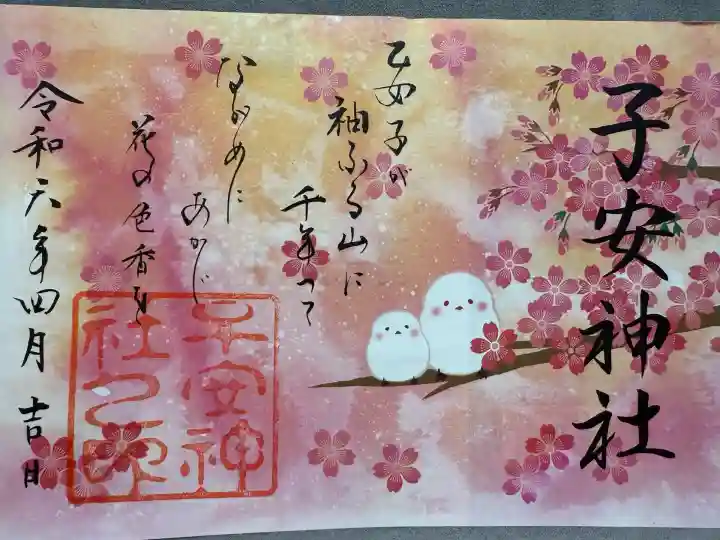 子安神社
乙女子が
袖ふる山に
千年へて
ながめに
あかじ
花の色香を
令和六年四月吉日
子安神
社之印